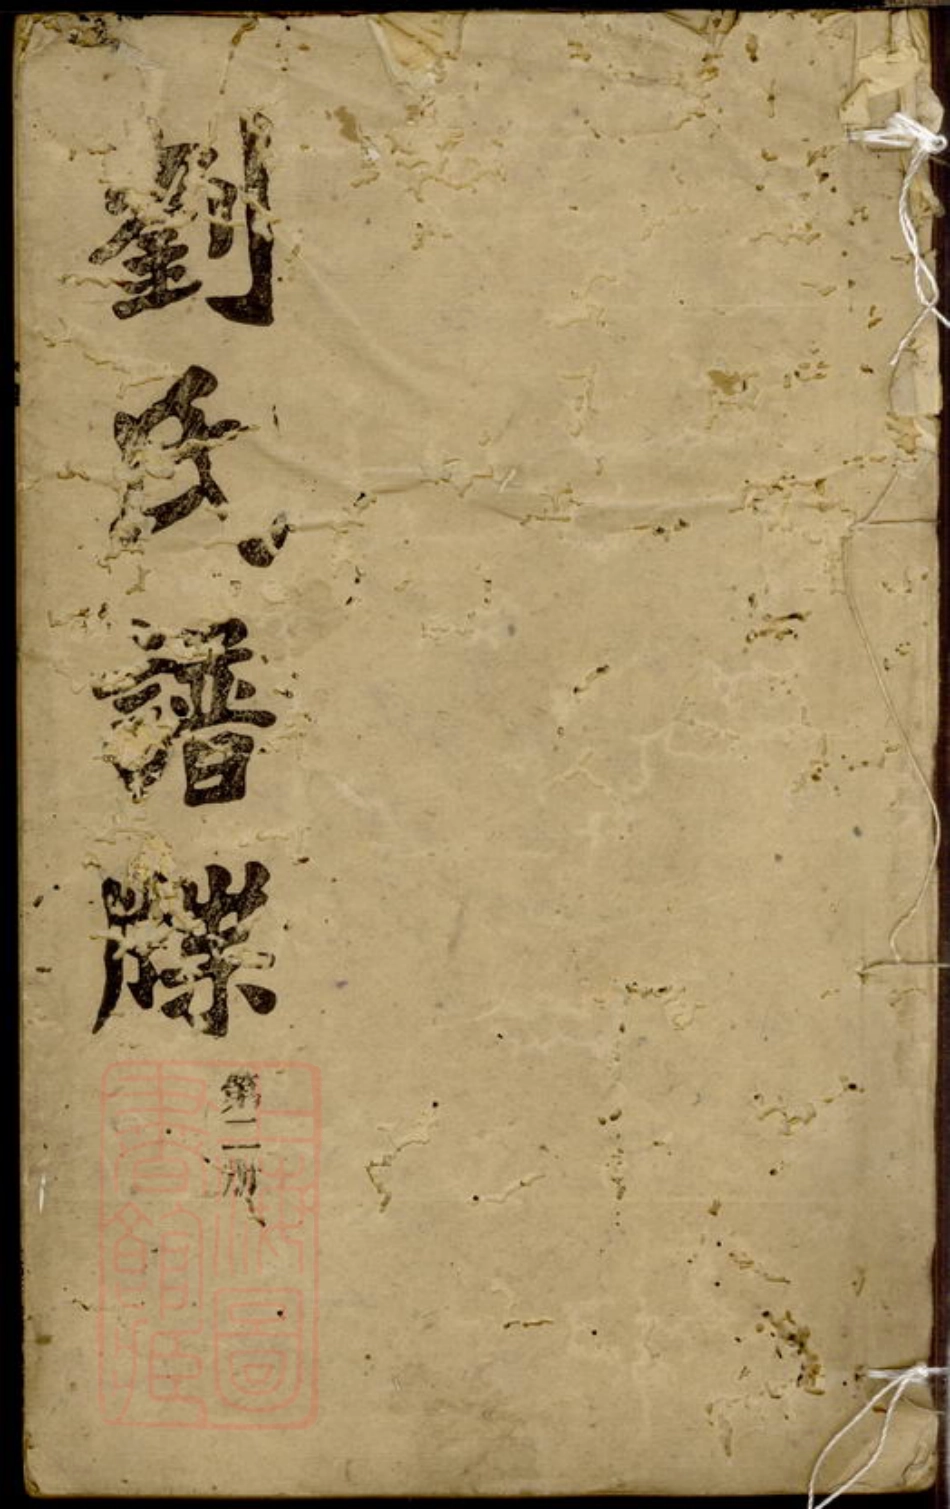 劉氏譜牒
第二册
上海圖書館藏